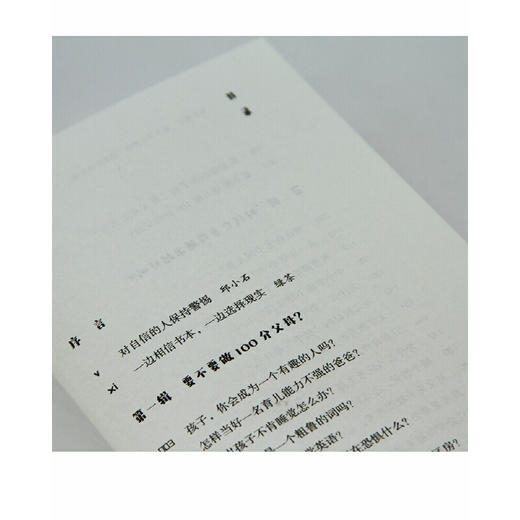 目录
序言
v 对自信的人保持警惕 邱小石
xi 一边相信书本，一边选择现实 绿茶
第一辑 要不要做100分父母？
003 孩子，你会成为一个有趣的人吗？
怎样当好一名育儿能力不强的爸爸？
孩子不肯睡觉怎么办？
是一个粗鲁的词吗？
学英语？
在恐惧什么？
区房？